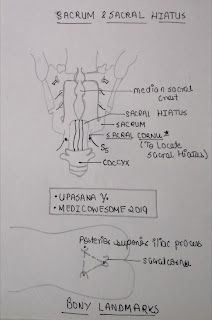 SACRUM & SACRAL HIATUS
median sacral
crest
SACRAL HIATUS
SACRUM
SACRAL CORNU*
(To Locate
sacral Hiatus)
S5
COCCYX
• UPASANA Y.
• MEDICOWESOME 2019
Posterior superior iliac process
sacral cornu
BONY LANDMARKS